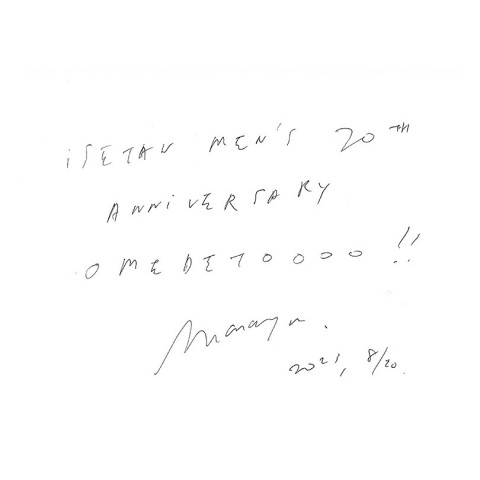 iSETAN MEN'S 20TH
ANNiVERSARY
OMEDETOOOO !!
2021, 8/20.